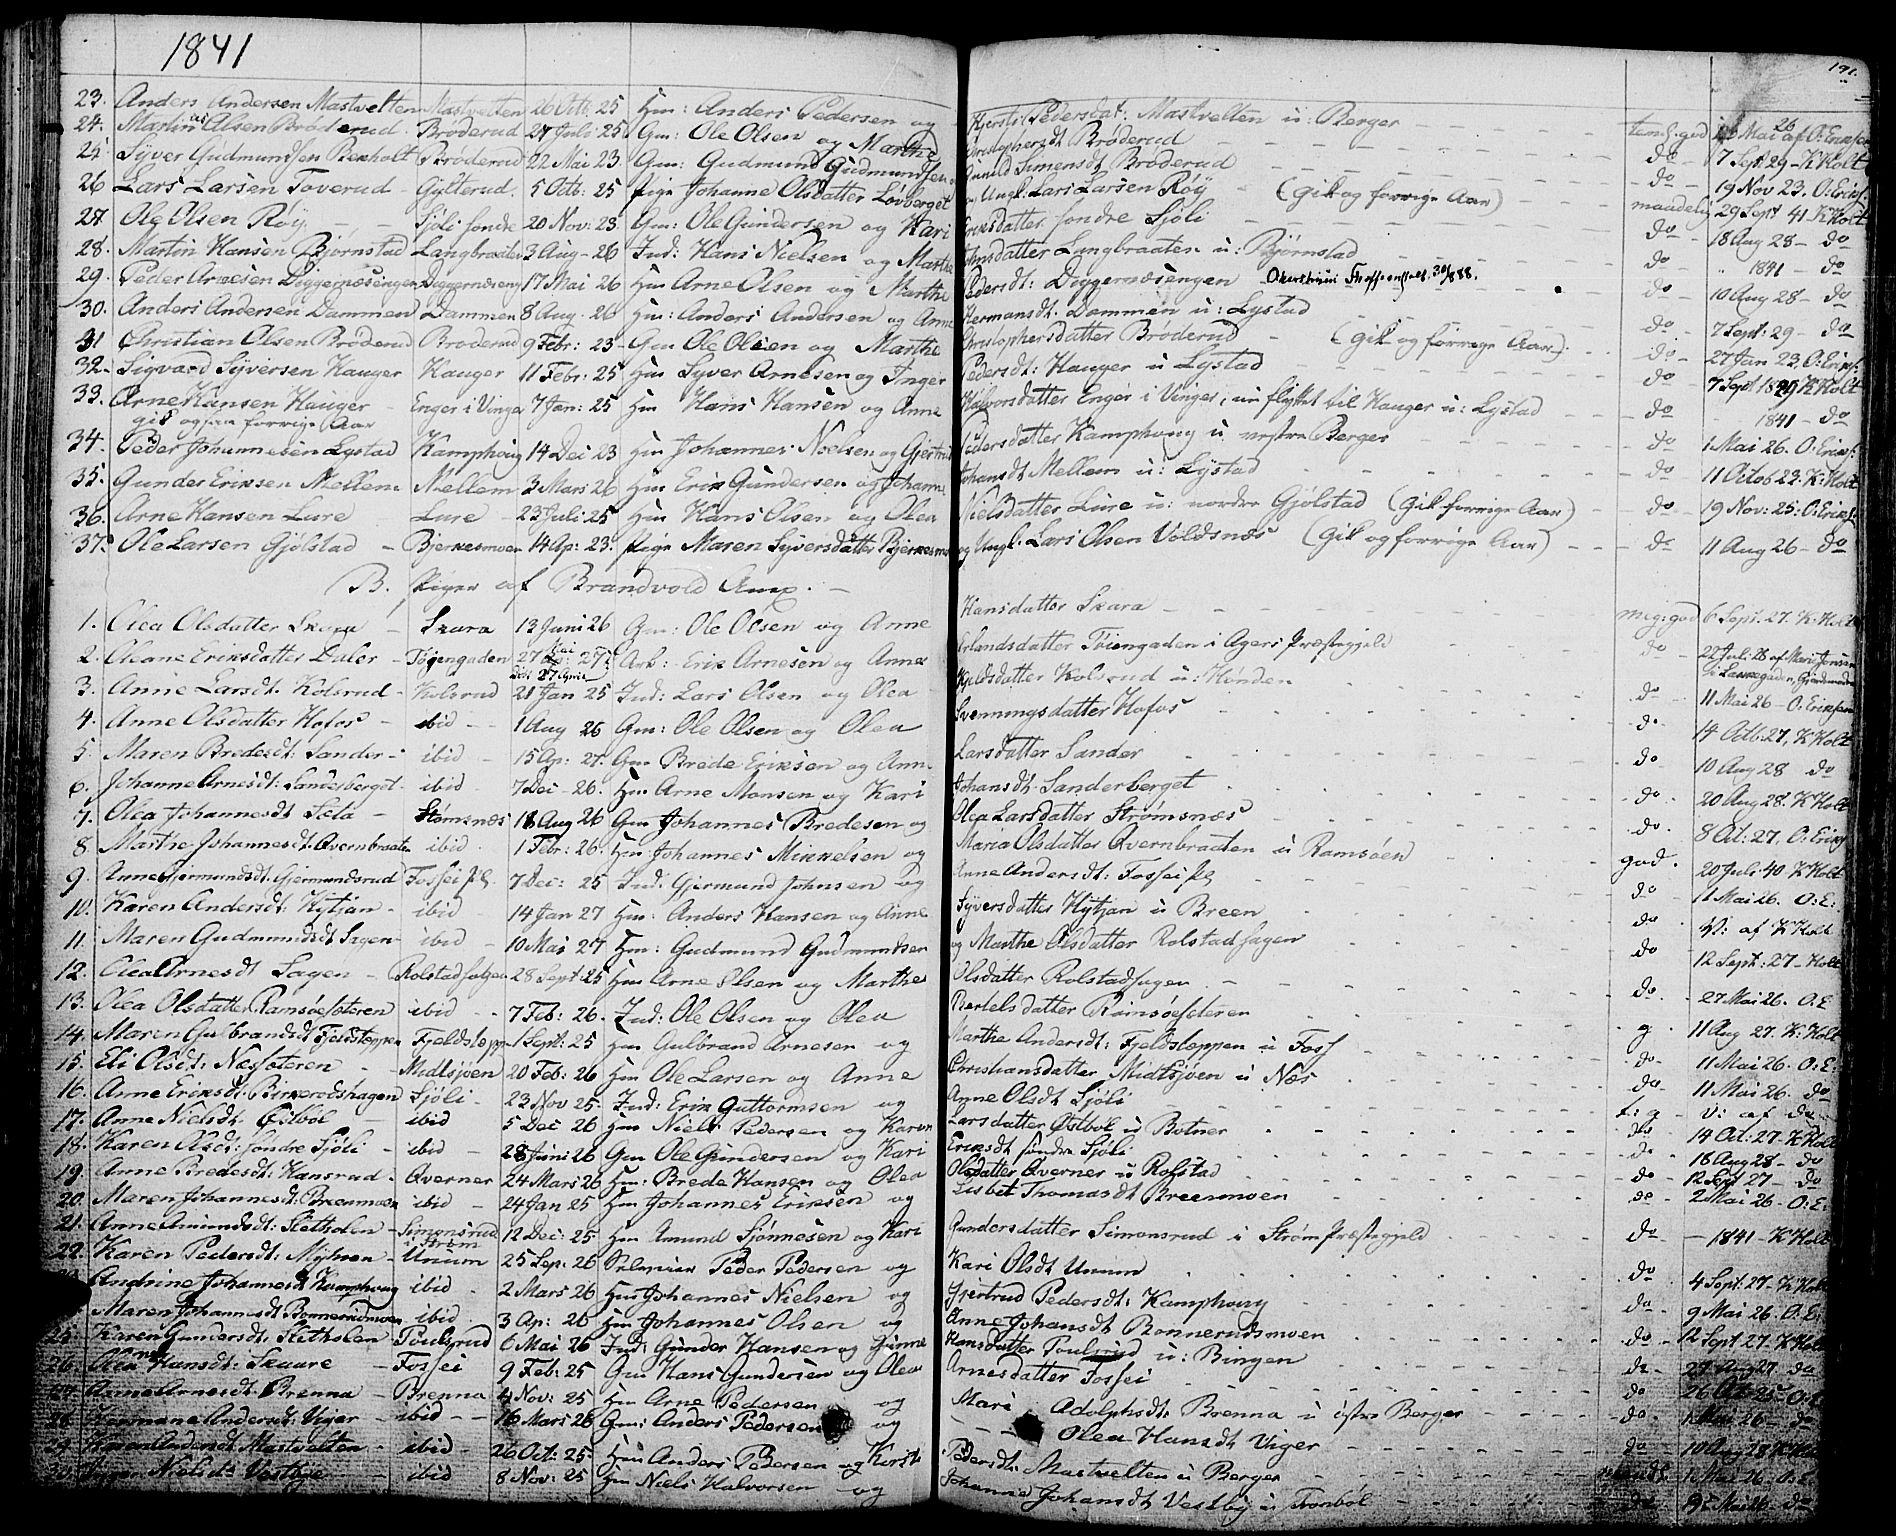 1841
191.
23. Anders Andersen Mastvelten Mastvelten 26 Octb: 25 Hm: Anders Pedersen og Kjersti Pedersdat: Mastvelten u: Berger temel: god Mai 26 af O: Eriksen
24. Martinus Olsen Bröderud Bröderud 27 Juli 25 Gm: Ole Olsen og Marthe Christophersdt Bröderud do 7 Sept 29 - K Holt
25 Syver Gudmundsen Berholt Bröderud 22 Mai 23. Gm: Gudmund Gudmundsen Gunild Simensdt Bröderud do 19 Nov 23. O: Eriks:
26 Lars Larsen Toverud - Gylterud 5 Octb: 25 Pige Johanne Olsdatter Løvberget og Ungk: Lars Larsen Röy (Gik og forrige Aar) maadelig 29 Sept 41 K Holt
27 Ole Olsen Röy Sjöli søndre 20 Nov: 23. Gm: Ole Gundersen og Kari Eriksdatter søndre Sjöli do 18 Aug 28 - do
28. Martin Hansen Björnstad Langbraaten 3 Aug - 26 Ind: Hans Nielsen og Marthe Langbraaten u: Bjørnstad do 1841 - do
29. Peder Arnesen Diggernæsengen Diggernæseng 17 Mai 26 Hm Arne Olsen og Marthe Pedersdt: Diggernæsengen 30/8 88. do 10 Aug 28 - do
30. Anders Andersen Dammen Dammen 8 Aug - 26 Hm: Anders Andersen og Anne Hermansdt. Dammen u: Lystad do 7 Sept: 29 - do
31 Christian Olsen Bröderud Bröderud 9 Febr: 23 - Gm Ole Olsen og Marthe Christophersdatter Bröderud - (gik og forrige Aar) do 27 Jan 23, O: Eriks:
32. Sigvard Syversen Hauger Hauger 11 Febr: 25 Hm Syver Arnesen og Inger Pedersdt: Hauger u Lystad do 7 Sept 1829 K Holt
33. Arne Hansen Hauger Enger i Vinger 7 Jan: 25 Hm Hans Hansen og Anne Halvorsdatter Enger i Vinger, nu flyttet til Hauger u: Lystad do 1841 - do
gik ogsaa forrige Aar
34. Peder Johannesen Lystad Kamphoug 14 Dec 23 Hm Johannes Nielsen og Gjertrud Pedersdatter Kamphoug u vestre Berger do 1 Mai 26. O: Eriks:
35. Gunder Eriksen Mellem Mellem 3 Mars 26 Hm Erik Gundersen og Johanne Johansdt Mellem u: Lystad do 11 Octob 23. K: Holt
36. Arne Hansen Lure - Lure - 23 Juli 25 Hm Hans Olsen og Olea Nielsdatter Lure u: nordre Gjölstad (Gik forrige Aar) do - 19 Nov: 25: O: Eriks
37. Ole Larsen Gjölstad - Bjerkesmoen 14 Ap: 23: Pige Maren Syversdatter Bjerkesmo og Ungk: Lars Olsen Voldsnæs (Gik og forrige Aar) do 11 Aug 26 - do
B. Piger af Brandvold Anx. -
1. Olea Olsdatter Skara - Skara 13 Juni 26 Gm: Ole Olsen og Anne Hansdatter Skara meg: god 6 Sept. 27. K: Holt
2. Oleane Eriksdatter Daler - Töyengaden 27 27. Arb: Erik Arnesen og Anne Erlandsdatter Töiengaden i Agers Præstegjeld do 27 Juli 28 af Mari Jensen
3. Anne Larsdt: Kolsrud - Kolsrud 21 Jan 25 Ind: Lars Olsen og Olea Kjeldsdatter Kolsrud u: Hønden do 11 Mai 26 - O: Eriksen
4. Anne Olsdatter Hofos - ibid - 1 Aug 26 Gm: Ole Olsen og Olea Svenningsdatter Hofos do 14 Octb: 27, K Holt
5. Maren Bredesdt: Sander - ibid - 15 Ap: 27. Gm Brede Eriksen og Anne Larsdatter Sander do 10 Aug 28 do
6. Johanne Arnesdt: Sanderberget - ibid - 7 Dec - 26. Hm Arne Monsen og Kari Johansdt: Sanderberget do 20 Aug 28. K Holt
7. Olea Johannesdt Sæla - Stömsnæs 18 Aug 26 Gm Johannes Bredesen og Olea Larsdatter Strømsnæs do 8 Oct: 27. O: Eriks
8 Marthe Johannesdt: Qvernbraaten ibid 1 Febr: 26. Hm Johannes Mikkelsen og Maria Olsdatter Qvernbraaten u Ramsöen god. 20 Juli 40 K Holt
9. Anne Gjermundsdt: Gjermundsrud Fossei pl. 7 Dec: 25 Ind: Gjermund Johnsen og Anne Andersdt: Fossei pl do 11 Mai 26. O: E:
10. Karen Andersdt: Hytjan - ibid - 14 Jan 27 Hm: Anders Hansen og Anne Syversdatter Hytjan u Breen do V: af K Holt
11. Maren Gudmundsdt Sagen - ibid - 10 Mai 27 Hm: Gudmund Gudmundsen og Marthe Olsdatter Rolstadsagen do 12 Sept: 27 - K Holt
12. Olea Arnesdt Sagen - Rolstadsagen 28 Sept 25 Hm Arne Olsen og Marthe Olsdatter Rolstadsagen do 27 Mai 26. O: E
13. Olea Olsdatter Ramsöeseteren ibid - 7 Feb: 26. Ind: Ole Olsen og Olea Bertelsdatter Ramsöeseteren g 11 Aug 27. K: Holt
14. Maren Gulbrandsdt Fjeldstoppen Fjeldstopp 1 Sept: 25 Hm Gulbrand Arnesen og Marthe Andersdt: Fjeldstoppen u Foss do 11 Mai 26. O: E:
15. Eli Olsdt: Næsseteren - Midtsjöen 20 Feb: 26 Hm Ole Larsen og Anne Christiansdatter Midtsjöen u Næs do 11 Mai 26. do
16. Anne Eriksdt: Birkerodshagen Sjöli - 23 Nov 25: Ind: Erik Guttormsen og Anne Olsdt Sjöli t: g V: af do
17. Anne Nielsdt. Östböl - ibid 5 Dec 26 Hm Niels Pedersen og Karen Larsdatter Østböl u Botner do 14 Oct: 27 - K Holt
18. Karen Olsdt: søndre Sjöli - ibid - 28 Juni 26 Gm Ole Gundersen og Kari Eriksdt søndre Sjöli do 18 Aug 28 - do
19. Anne Bredesdt: Hansrud - Qverner 24 Mars 26 Hm: Brede Hansen og Olea Olsdatter Qverner u Rolstad do 12 Sept 27 - do
20. Maren Johannesdt: Breenmoen ibid - 24 Jan 25 Hm Johannes Eriksen og Lisbet Thomasdt Breenmoen do 2 Mai 26 - O: E:
21. Anne Amundsdt: Stetholen - Simonsrud i Ström 12 Dec: 25 Hm Amund Sjönnesen og Kari Gundersdatter Simonsrud i Ström Præstegjeld do - 1841 - K Holt
22. Karen Pedersdt: Myhren - Unum 25 Sep: 26 Peder Pedersen og Kari Olsdt Unum do 4 Sept: 27 - K Holt
Andrine Johannesdt Kamphoug ibid - 2 Mars 26 Hm Johannes Nielsen og Gjertrud Pedersdt: Kamphoug do 9 Mai 26 - O: E:
Maren Johannesdt Bonnerudmoen ibid 3 Ap: 26 Hm Johannes Olsen og Anne Johansdt Bonnerudsmoen do 12 Sept 27. K Holt
25. Karen Gundersdt: Stetholen - Poulsrud 6 Mai 26 Ind: Gunder Hansen og Gunne Hansdatter Poulsrud u: Bingen do 27 Aug 27 do
26. Olea Hansdt: Skaare - Fossei 9 Feb: 25 Gm Hans Gundersen og Olea Arnesdatter Fossei do 26 Oct: 25: O: E:
Anne Arnesdt: Brenna - Brenna 4 Nov: 25 Hm Arne Pedersen og Mari Adolphsdt: Brenna u østre Berger do 1 Mai 26 - do
Hermane Andersdt: Viger - ibid - 16 Mars 26 Gm: Anders Pedersen og Olea Hansdt Viger do 10 Aug 28 K Holt
29. Karen Andersdt Mastvelten - ibid - 26 Oct: 25: Hm Anders Pedersen og Kirsti Pedersdt: Mastvelten u Berger 1 Mai 26 - O: E:
Inger Nielsdt Vestbye - ibid 8 Nov: 25 Hm Niels Halvorsen og Johanne Johansdt Vestby u Tronböl do